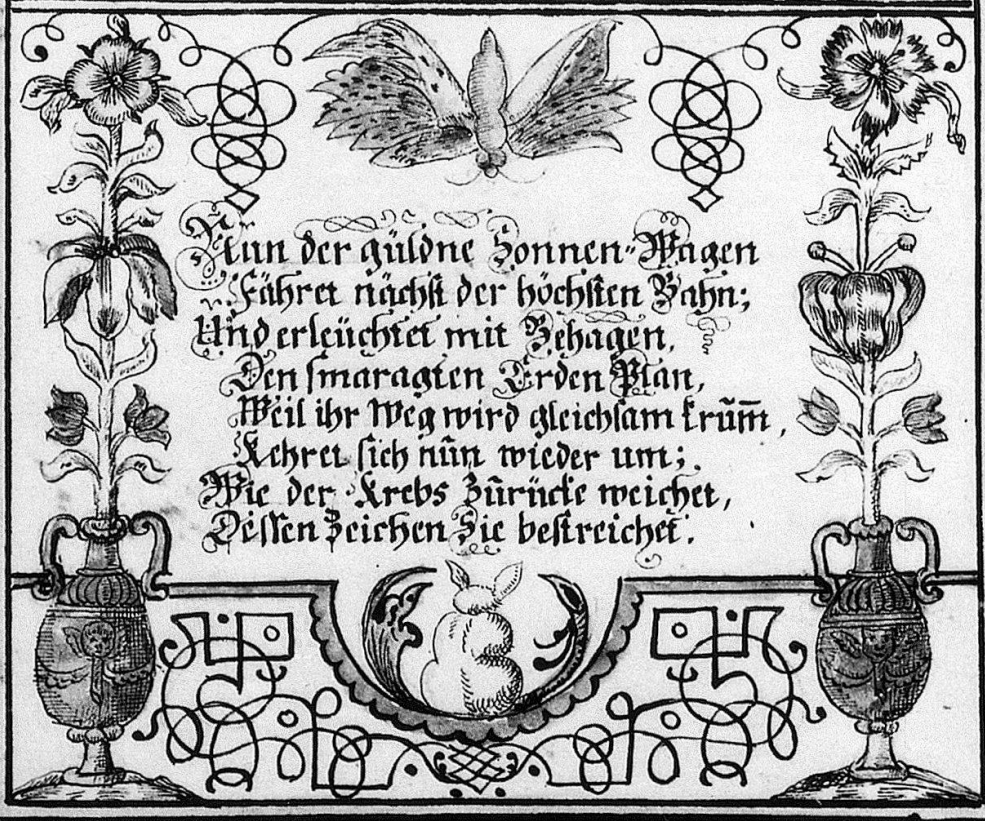 Nun der güldne Sonnen-Wagen
Fähret nächst der höchsten Bahn;
Und erleüchtet mit Behagen,
Den smaragten Erden Plan,
Weil ihr Weg wird gleichsam krum̄,
Kehret sich nūn wieder um;
Wie der Krebs Zūrücke weichet,
Dessen Zeichen Sie bestreichet.